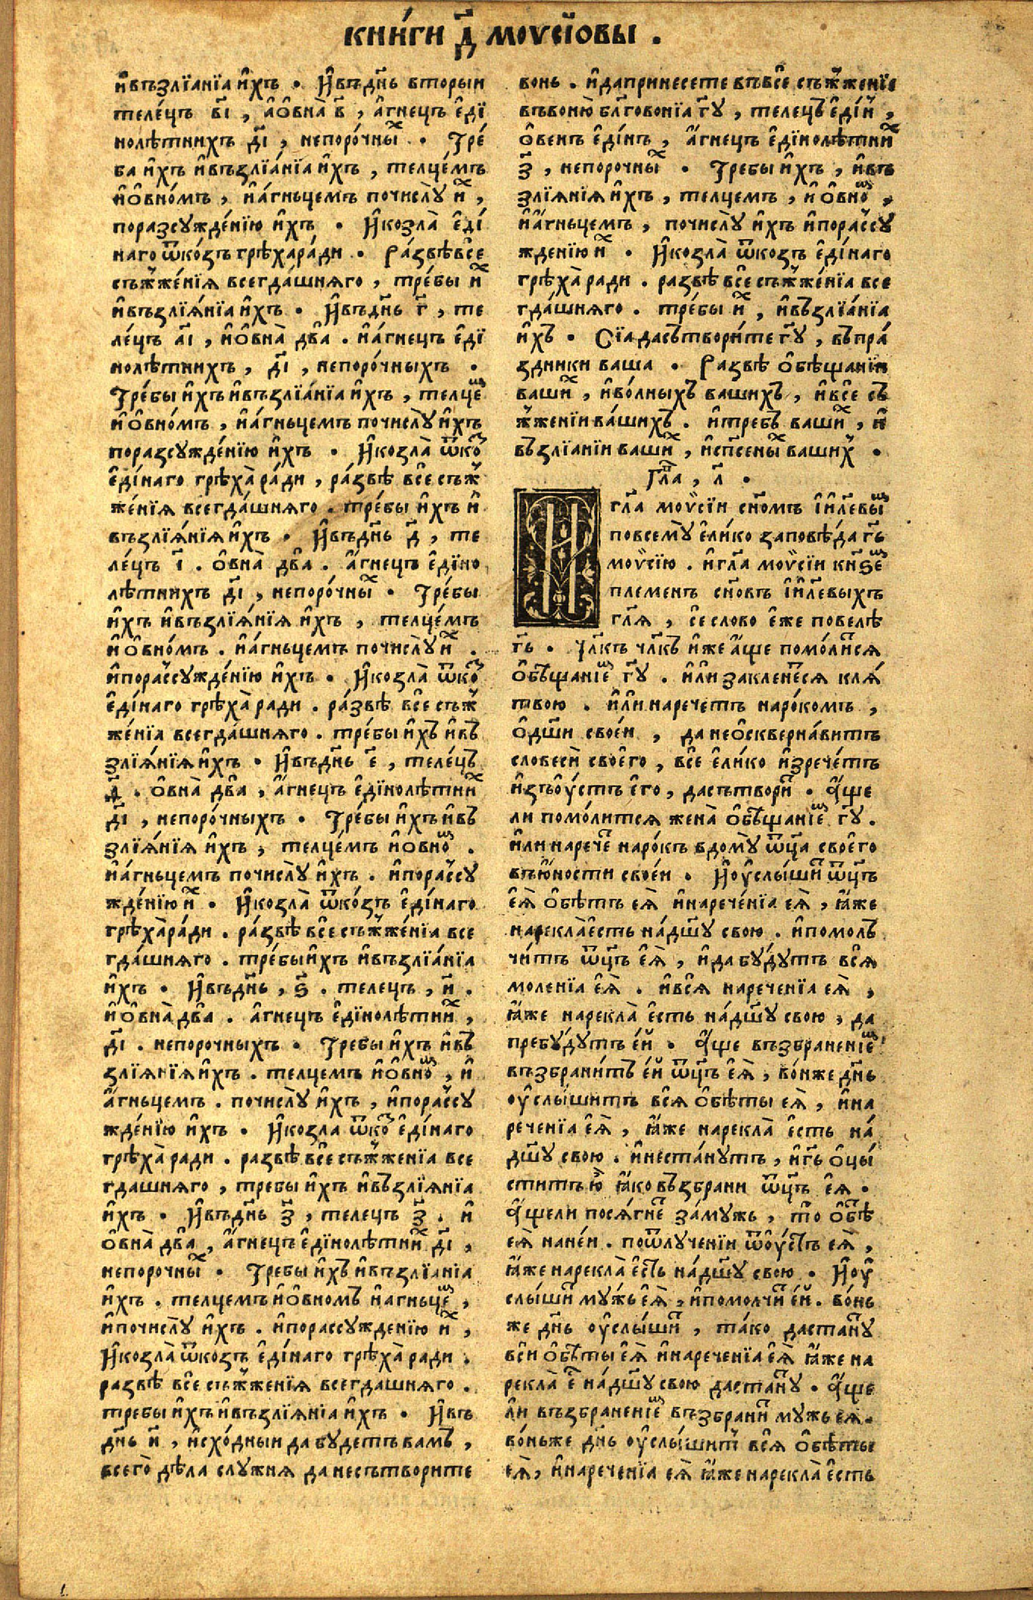 КНИ́ГИ Д҃ МОѴСІ́ОВЫ .
и҆възлїанїа и҆хъ • И҆въдн҃ь вторыи
теле́цъ в҃і , а҆о҆вна̀ в҃ , а҆́гнецъ є҆дї
нолѣтнихъ д҃і , непоро́чныⷯ • Тре́
ба и҆хъ и҆възлїа́нїа и҆хъ , телце́мъ
и҆о҆вно́мъ , и҆а҆́гньцемъ почислꙋ̀ иⷯ ,
поразсꙋжде́нїю и҆хъ • И҆козла̀ є҆ді́
наго ѿко́зъ грѣ́хара́ди • Ра́звѣ все
съжже́нїѧ всегда́шнѧго , тре́бы иⷯ
и҆възлїѧ́нїа и҆хъ • И҆въдн҃ь г҃ , те
ле́цъ а҃і , и҆о҆вна̀ два . и҆а҆́гнецъ є҆ді
нолѣ́тнихъ , д҃і , непоро́чныхъ •
Тре́бы и҆хъ и҆възлїа́нїа и҆хъ , телцеⷨ
и҆о҆вно́мъ , и҆а҆́гньцемъ почислꙋ̀ и҆хъ
поразсꙋжде́нїю и҆хъ • И҆козла̀ ѿкоⷥ
є҆ді́наго грѣ́ха̀ ра́ди , ра́звѣ все съж
же́нїѧ всегда́шнѧго . тре́бы и҆хъ и҆
възлїѧ́нїѧ и҆хъ • И҆въдн҃ь д҃ , те
ле́цъ і҃ . о҆вна̀ два . а҆́гнецъ є҆ді́но
лѣ́тнихъ д҃і , непоро́чныⷯ • Тре́бы
и҆хъ и҆възлїѧ́нїѧ и҆хъ , телце́мъ
и҆о҆вно́мъ . и҆а҆́гньцемъ почислꙋ̀ иⷯ .
и҆порассꙋжде́нїю и҆хъ • И҆козла̀ ѿкоⷥ
є҆ді́наго грѣ́ха̀ ра́ди . ра́звѣ все съж
же́нїа всегда́шнѧго . тре́бы и҆хъ и҆въ
злїѧ́нїѧ и҆хъ • И҆въдн҃ь є҃ , теле́цъ
д҃ . о҆вна̀ два , а҆́гнецъ є҆дїнолѣ́тниⷯ
д҃і , непоро́чныхъ • Тре́бы и҆хъ и҆въ
злїѧ́нїѧ и҆хъ , телце́мъ и҆о҆вноⷨ .
и҆а҆́гньцемъ почислꙋ̀ и҆хъ . и҆порассꙋ
жде́нїю иⷯ • И҆козла̀ ѿко́зъ є҆ді́наго
грѣ́ха̀ра́ди . ра́звѣ все съжже́нїа все
гда́шнѧго . тре́бы и҆хъ и҆възлїа́нїа
и҆хъ • И҆въдн҃ь , ѕ҃ . телецъ , и҃ .
и҆о҆вна̀ два . а҆́гнецъ є҆дїнолѣтниⷯ ,
д҃і . непорочныхъ • Требы и҆хъ и҆въ
злїѧ́нїѧ и҆хъ . телцемъ и҆о҆вноⷨ , и҆
а҆́гньцемъ . почислꙋ̀ и҆хъ , и҆порассꙋ
жде́нїю и҆хъ • И҆козла ѿкоⷥ є҆ді́наго
грѣ́ха̀ ради . развѣ все съжженїа все
гдашнѧго , требы и҆хъ и҆възлїѧнїа
и҆хъ • И҆въдн҃ь з҃ , телецъ з҃ . и҆
о҆вна̀ два , а҆́гнецъ є҆дїнолѣтниⷯ д҃і ,
непорочныⷯ • Требы и҆хъ и҆възлїанїа
и҆хъ . телцемъ и҆о҆вномъ и҆агньцеⷨ ,
и҆почислꙋ̀ и҆хъ . и҆порассꙋжденїю иⷯ ,
И҆козла̀ ѿкозъ є҆ді́наго грѣ́ха̀ ради .
развѣ все съжженїѧ всегдашнѧго .
требы и҆хъ и҆възлїѧнїа и҆хъ • И҆въ
дн҃ь и҃ , и҆схо́дныи да бꙋдетъ вамъ ,
всего̀ дѣ́ла слꙋжнѧ да несътворите
вонь . и҆дапринесете въвсе съжженїе
въвоню̀ бл҃говонїа г҃ꙋ , телецъ є҆ди́н ,
о҆венъ є҆ді́нъ , а҆́гнецъ є҆дїнолѣтниⷯ
з҃ , непорочныⷯ • Требы и҆хъ , и҆въ
злїѧнїѧ и҆хъ , телцемъ , и҆о҆вноⷨ ,
и҆а҆́гньцемъ , почислꙋ̀ и҆хъ и҆порассꙋ
жденїю иⷯ • И҆козла̀ ѿкозъ є҆ді́наго
грѣ́ха̀ ради . развѣ все съжженїа все
гда́шнѧго . требы иⷯ , и҆възлїа́нїа
и҆хъ • Сїа̀ дасътвори́те г҃ꙋ , въпра́
здники ваша • Развѣ о҆бѣщанїи
вашиⷯ , и҆волныхъ вашихъ , и҆все съ
жженїи ва́шихъ . и҆требъ вашиⷯ , и҆
възлїанїи вашиⷯ , и҆сп҃сеныⷯ вашиⷯ •
Гла , л҃ •
И҆ гл҃а моѵсїи сн҃омъ і҆и҃левыⷨ
повсемꙋ̀ є҆ли́ко заповѣ́да г҃ь
моѵсїю . и҆гл҃а моѵсїи кн҃ѕеⷨ
племенъ сн҃овъ і҆и҃левыхъ
гл҃ѧ , се слово є҆же повелѣ̀
г҃ь • Чл҃къ чл҃къ и҆же а҆́ще помо́литсѧ
о҆бѣщанїеⷨ г҃ꙋ . и҆ли закленетсѧ клѧ́
твою . и҆ли наречетъ наро́комъ ,
о҆дш҃и свое́и , да нео҆скверна́витъ
словеси своего , все є҆лико и҆зрече́тъ
и҆зъоу҆́стъ є҆го , дасътвориⷮ • А҆́ще
ли помо́литсѧ жена̀ о҆бѣщанїеⷨ г҃ꙋ .
и҆ли наречеⷮ наро́къ вдомꙋ̀ ѿц҃а своего
въю҆ности своеи • И҆оу҆слышиⷮ ѿц҃ъ
є҆ѧ̀ о҆бѣтъ є҆ѧ̀ и҆нарече́нїа є҆ѧ̀ , ꙗ҆́же
нарекла̀есть на́дш҃ꙋ свою . и҆помолъ
чи́тъ ѿц҃ъ є҆ѧ̀ , и҆да бꙋ́дꙋтъ всѧ
моленїа є҆ѧ̀ . и҆всѧ̀ нареченїа є҆ѧ̀ ,
ꙗ҆́же нарекла̀ є҆сть на́дш҃ꙋ свою , да
пребꙋ́дꙋтъ є҆и • А҆́ще възбраненїеⷨ
възбранитъ є҆и ѿц҃ъ є҆ѧ̀ , во́ньже дн҃ь
оу҆слы́шитъ всѧ о҆бѣ́ты є҆ѧ̀ , и҆на
реченїа є҆ѧ̀ , ꙗ҆́же нарекла̀ є҆сть на́
дш҃ꙋ свою . и҆неста́нꙋтъ , и҆г҃ь о҆цы́
ститъ ю҆̀ ꙗ҆́ко възбрани ѿц҃ъ є҆ѧ̀ •
А҆́щели посѧгнеⷮ за́мꙋжь , то о҆бѣⷮ
є҆ѧ̀ нане́и . поѿлꙋченїи ѿоу҆стъ є҆ѧ̀ ,
ꙗ҆́же нарекла̀ є҆сть на́дш҃ꙋ свою • И҆оу҆
слы́шиⷮ мꙋ́жь є҆ѧ̀ , и҆помолчиⷮ є҆и . во́нь
же дн҃ь оу҆слы́шиⷮ , та́ко дастанꙋⷮ
вси о҆бѣты є҆ѧ̀ и҆нареченїа є҆ѧ̀ ꙗ҆́же на
рекла̀ є҆ⷭ на́дш҃ꙋ свою дастанꙋⷮ • А҆́ще
ли възбраненїеⷨ възбраниⷮ мꙋжь є҆ѧ̀ .
во́ньже дн҃ь оу҆слы́шитъ всѧ о҆бѣты
є҆ѧ̀ , и҆нареченїа є҆ѧ̀ ꙗ҆́же нарекла̀ є҆сть